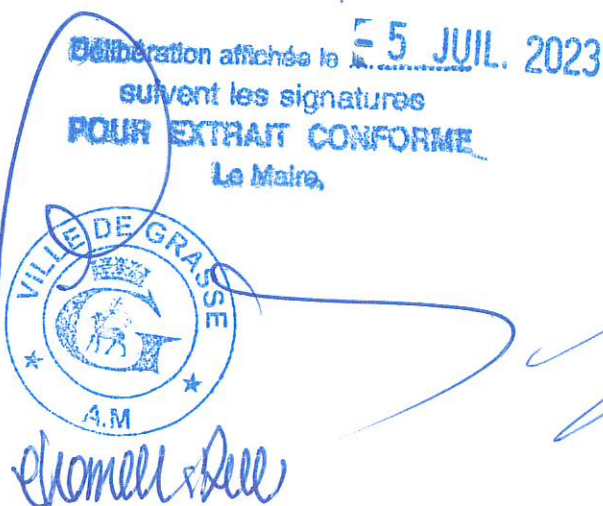 Délibération affichée le - 5 JUIL. 2023
suivent les signatures
POUR EXTRAIT CONFORME
Le Maire,
VILLE DE GRASSE
G
A.M